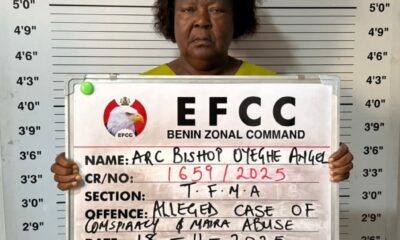 5'0" 5'0"
4'9" 4'9"
4'6" 4'6"
4'3" 4'3"
4'0" 4'0"
3'9" 3'9"
3'6" 3'6"
3'3" 3'3"
3'0" 3'0"
2'9" 2'9"
EFCC
EFCC
BENIN ZONAL COMMAND
NAME: ARC BISHOP OYEGHE ANGEL
CR/NO: 1659/2025
SECTION: T.F.M.A
OFFENCE: ALLEGED CASE OF
COMSPIRACY & MAIRA ABUSE
DATE: 18 - 11 - 2025